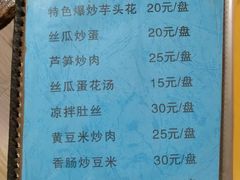 特色爆炒芋头花 20元/盘
丝瓜炒蛋 20元/盘
芦笋炒肉 25元/盘
丝瓜蛋花汤 15元/盘
凉拌肚丝 30元/盘
黄豆米炒肉 25元/盘
香肠炒豆米 30元/盘